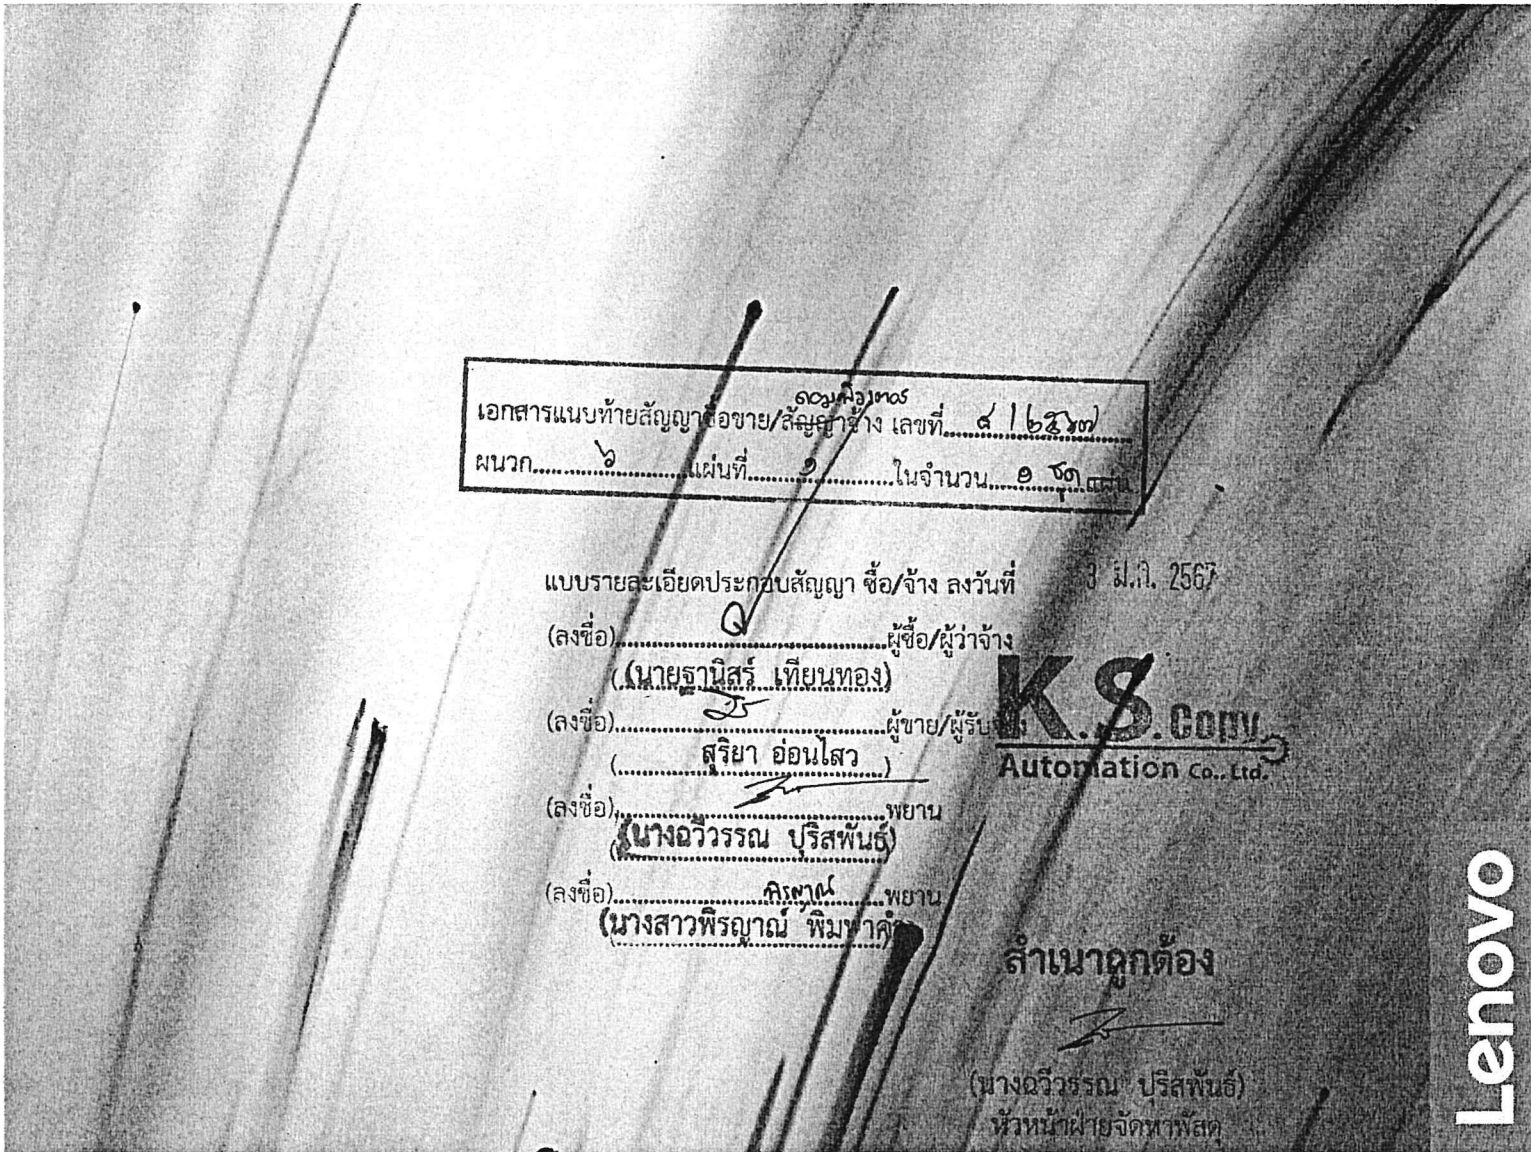 คอมพิวเตอร์
เอกสารแนบท้ายสัญญาซื้อขาย/สัญญาจ้าง เลขที่ ๔/๒๕๖๗
ผนวก ๖ แผ่นที่ ๑ ในจำนวน ๑ ชุด แผ่น
แบบรายละเอียดประกอบสัญญา ซื้อ/จ้าง ลงวันที่
2567
(ลงชื่อ) ผู้ซื้อ/ผู้ว่าจ้าง
(นายฐานิสร์ เทียนทอง)
(ลงชื่อ) ผู้ขาย/ผู้รับจ้าง
(สุริยา อ่อนไสว)
K.S. Copy
Automation Co., Ltd.
(ลงชื่อ) พยาน
(นางฉวีวรรณ ปุริสพันธ์)
(ลงชื่อ) พิรญาณ์ พยาน
(นางสาวพิรญาณ์ พิมพาคำ)
สำเนาถูกต้อง
(นางฉวีวรรณ ปุริสพันธ์)
หัวหน้าฝ่ายจัดหาพัสดุ
Lenovo